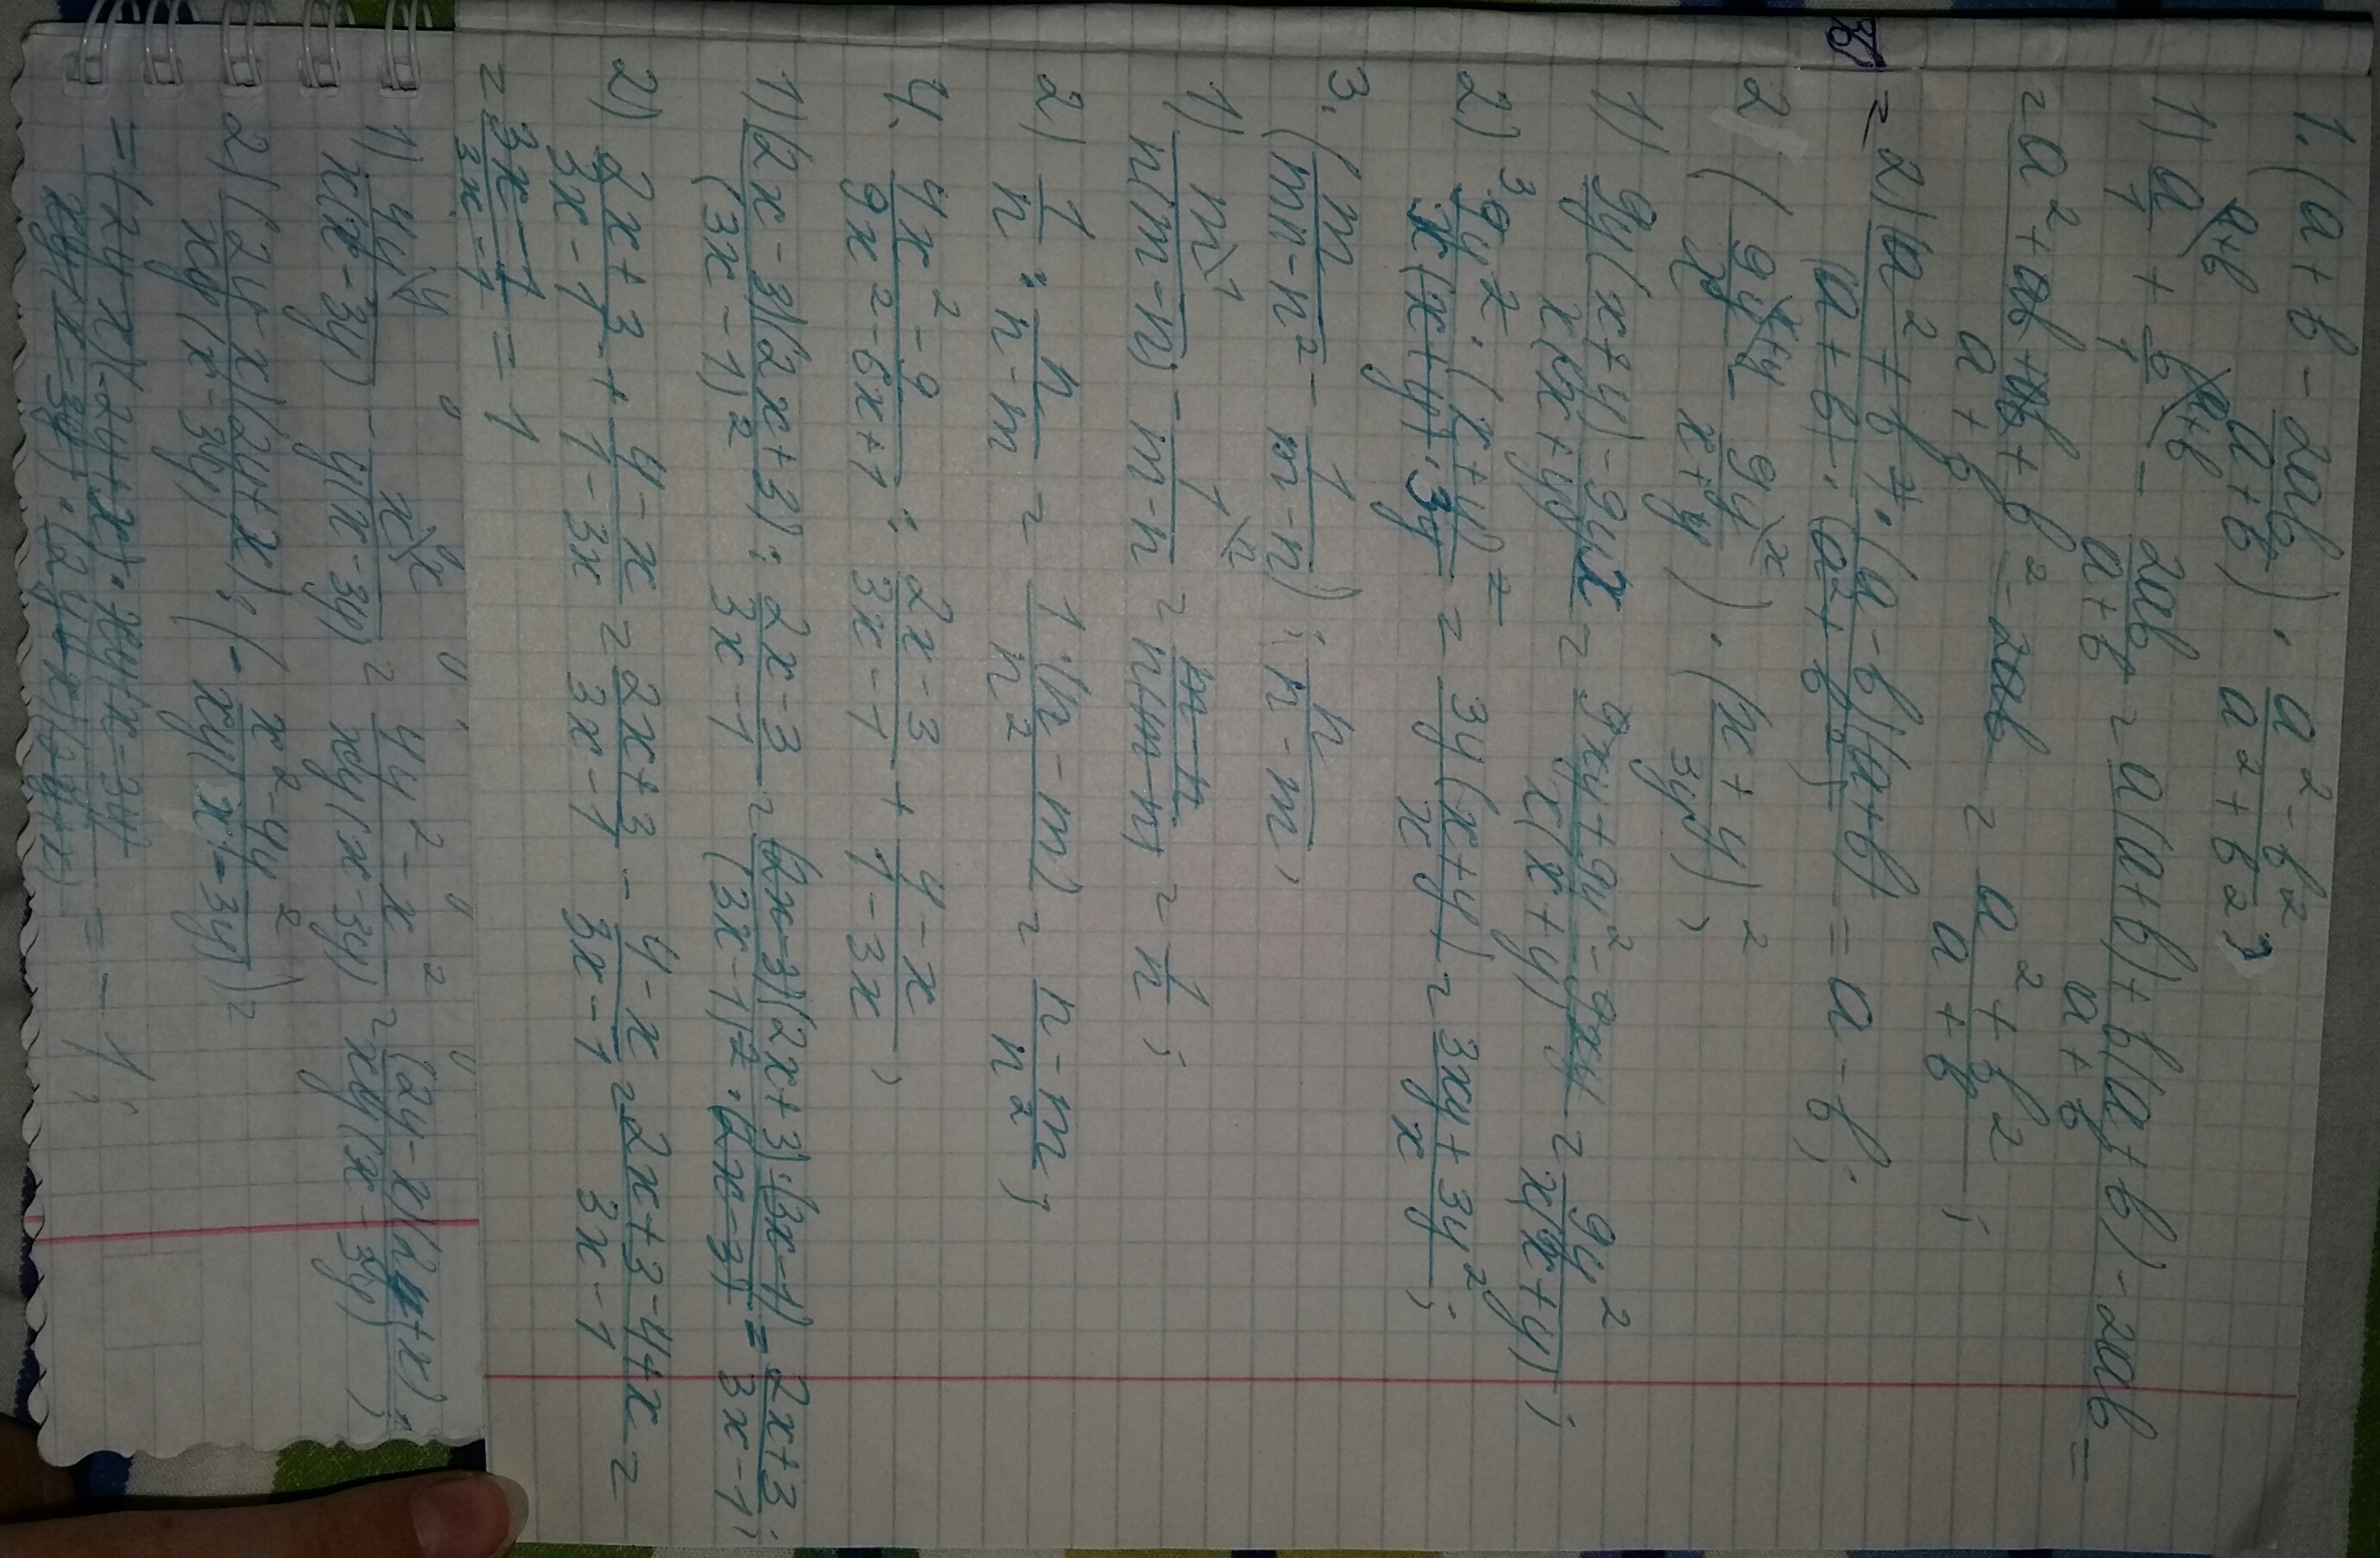 1. (a + b - 2ab/(a+b)) · (a² - b²)/(a² + b²);
1) a/1 \a+b + b/1 \a+b - 2ab/(a+b) = (a(a+b) + b(a+b) - 2ab)/(a+b) =
= (a² + ab + ab + b² - 2ab)/(a+b) = (a² + b²)/(a+b);
= 2) ((a² + b²) · (a-b)(a+b))/((a+b) · (a² + b²)) = a - b;
2 (9y/x \x+y - 9y/(x+y) \x) · ((x+y)/3y)²;
1) (9y(x+y) - 9yx)/(x(x+y)) = (9xy + 9y² - 9xy)/(x(x+y)) = 9y²/(x(x+y));
2) (9y² · (x+y)²)/(x(x+y) · 3y) = 3y(x+y)/x = (3xy + 3y²)/x;
3. (m/(mn-n²) - 1/(m-n)) : n/(n-m);
1) m\1/(n(m-n)) - 1\n/(m-n) = (m-n)/(n(m-n)) = 1/n;
2) 1/n : n/(n-m) = 1·(n-m)/n² = (n-m)/n²;
4. (4x² - 9)/(9x² - 6x + 1) : (2x-3)/(3x-1) + (4-x)/(1-3x);
1) (2x-3)(2x+3)/(3x-1)² : (2x-3)/(3x-1) = ((2x-3)(2x+3)·(3x-1))/((3x-1)²·(2x-3)) = (2x+3)/(3x-1);
2) (2x+3)/(3x-1) + (4-x)/(1-3x) = (2x+3)/(3x-1) - (4-x)/(3x-1) = (2x+3-4+x)/(3x-1) =
= (3x-1)/(3x-1) = 1
1) 4y\y/(x(x-3y)) - x\x/(y(x-3y)) = (4y² - x²)/(xy(x-3y)) = (2y-x)(2y+x)/(xy(x-3y));
2) (2y-x)(2y+x)/(xy(x-3y)) : (- (x² - 4y²)/(xy(x-3y)))